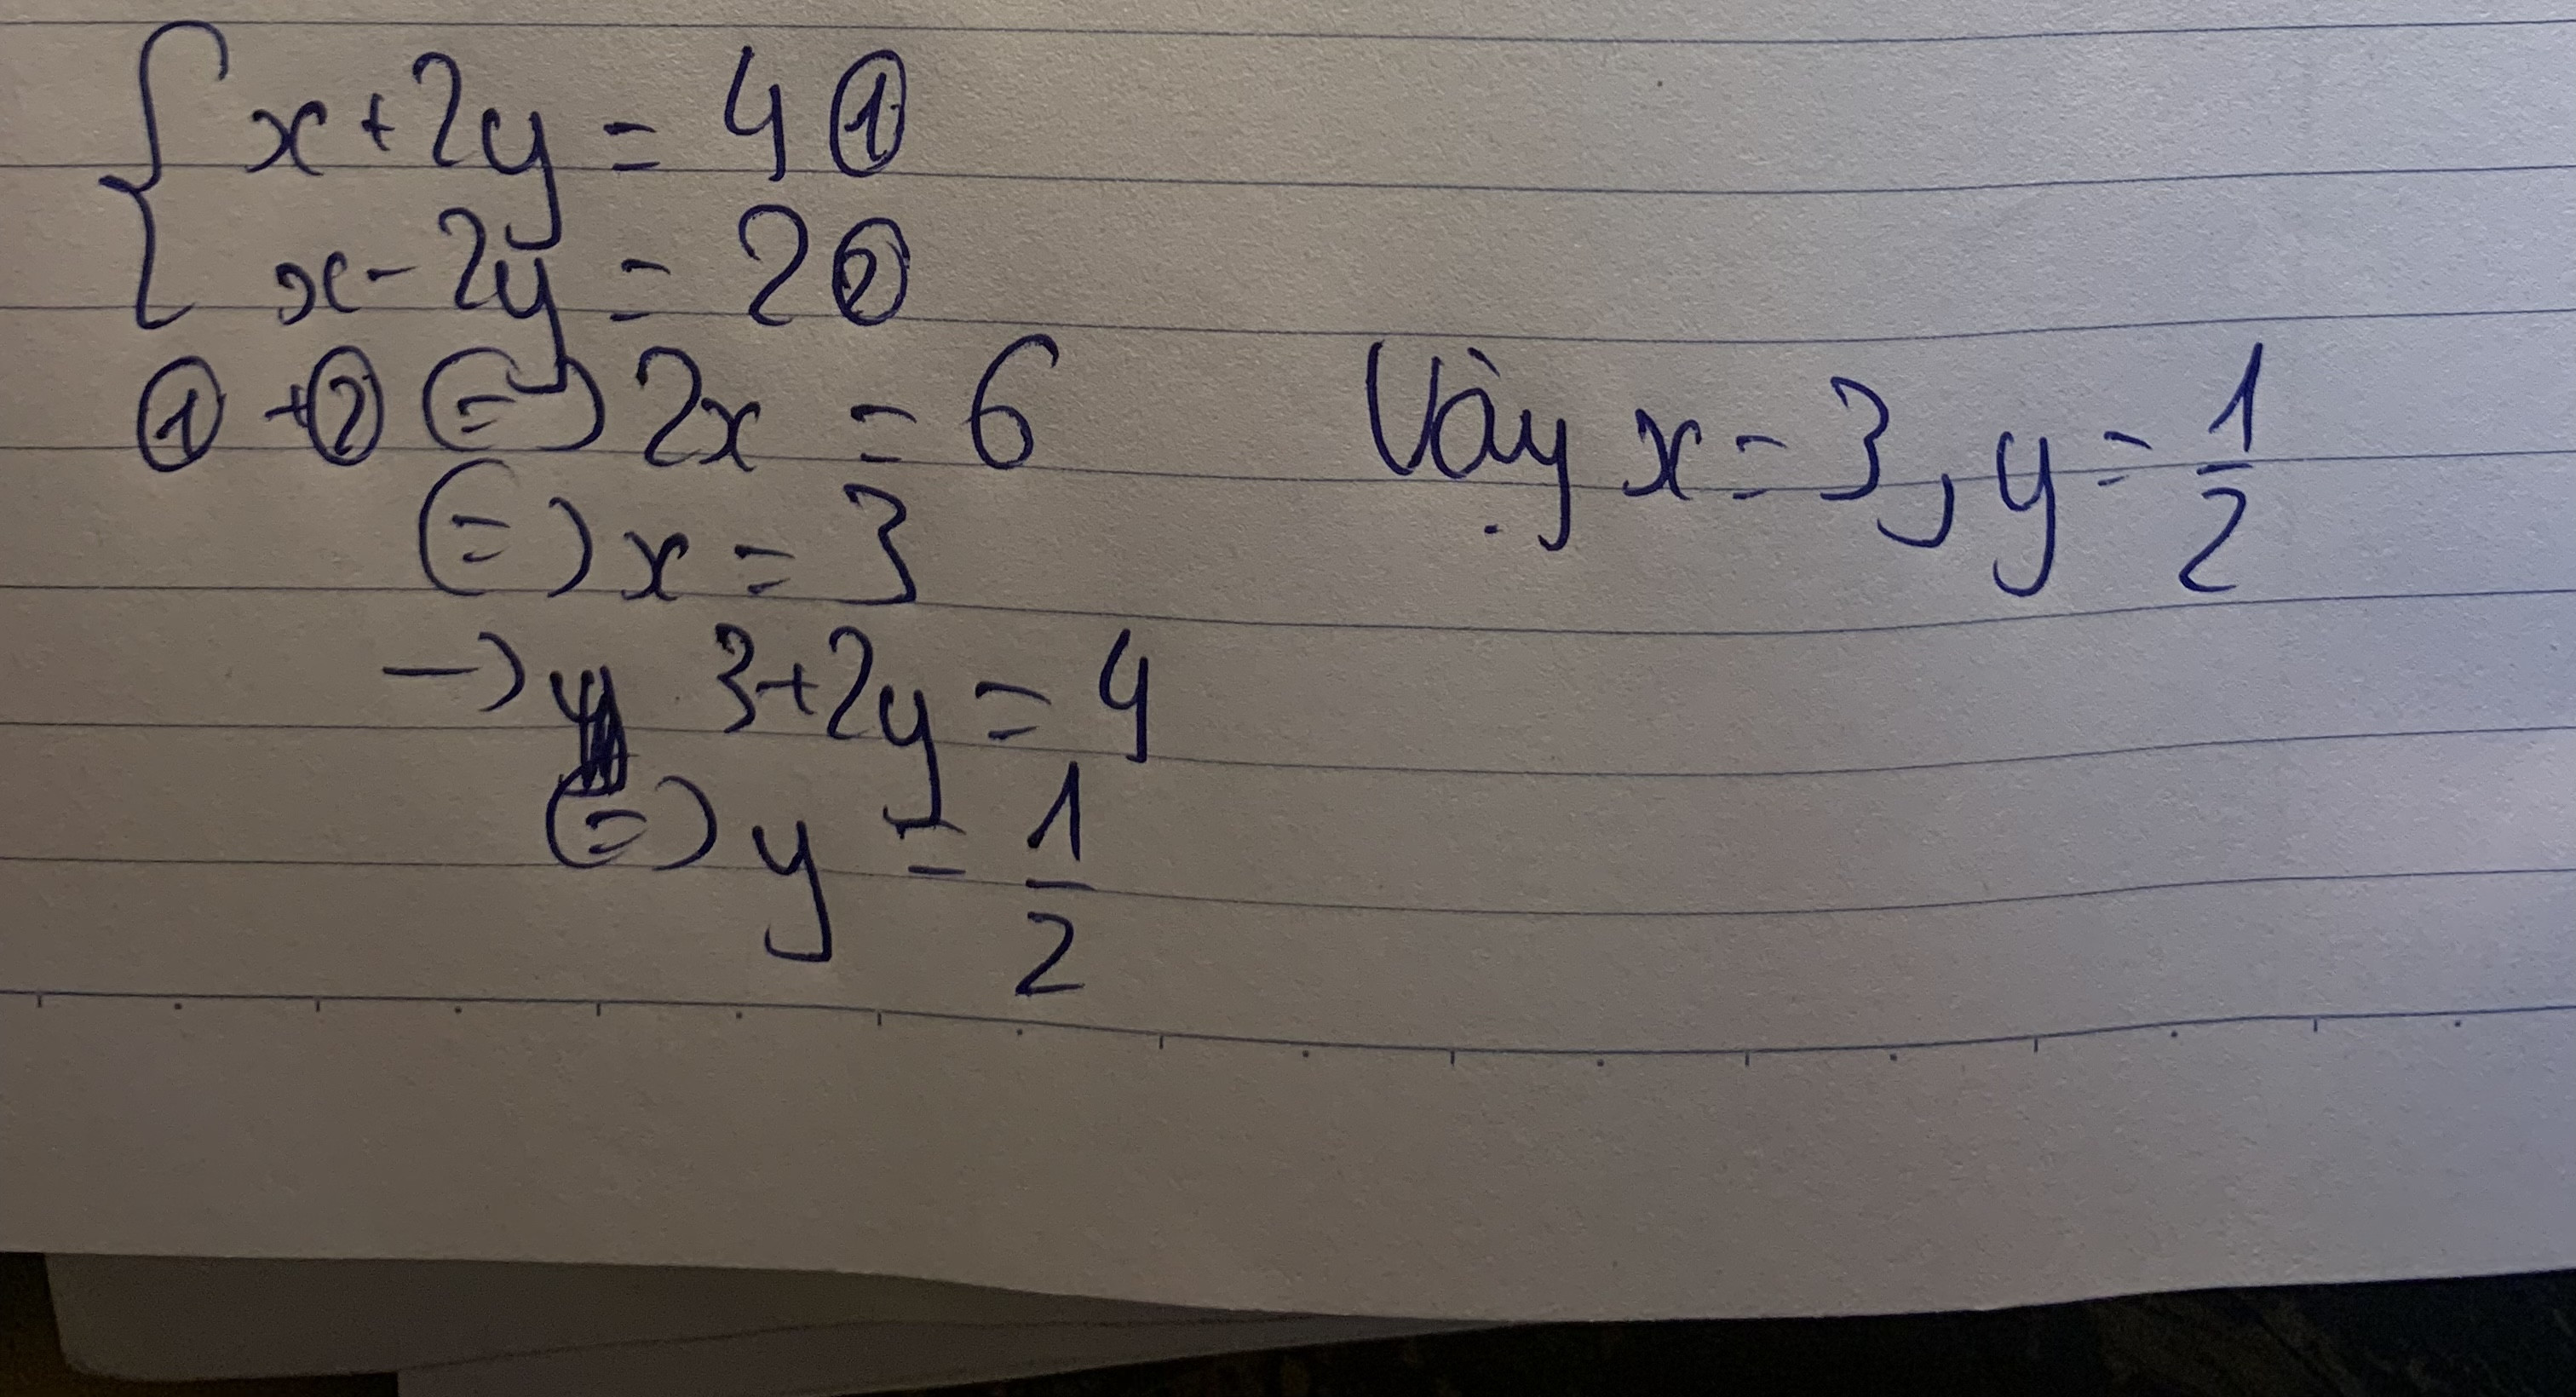 x + 2y = 4 ①
x - 2y = 2 ②
① + ② (=) 2x = 6
(=) x = 3
→ 3 + 2y = 4
(=) y = 1/2
Vậy x = 3, y = 1/2